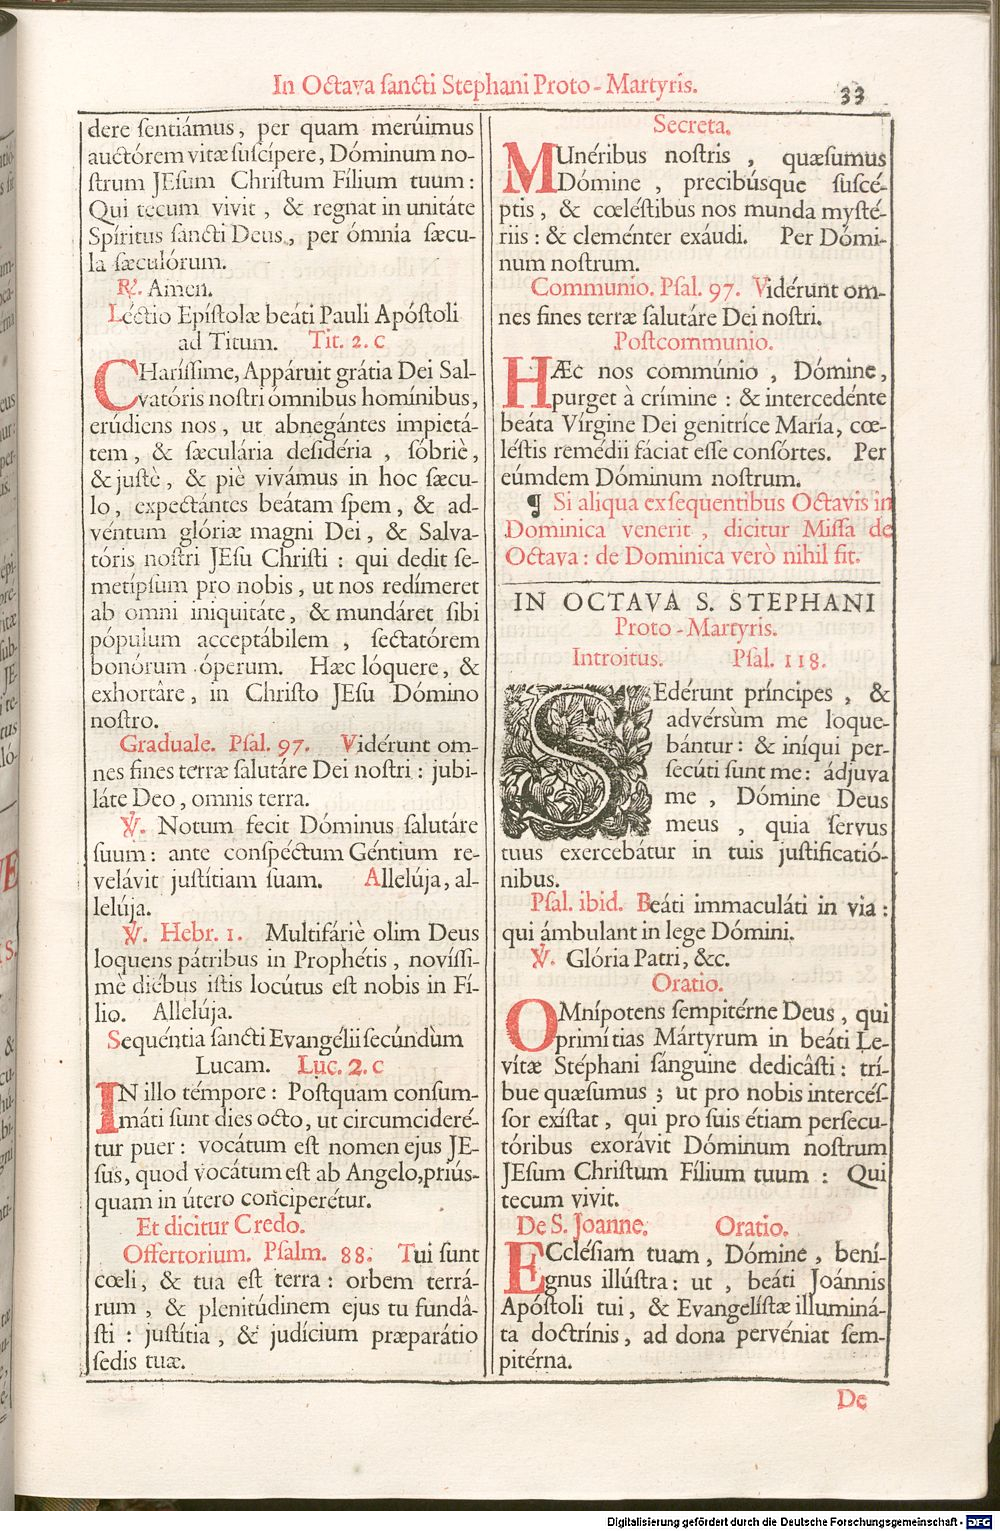 In Octava ſancti Stephani Proto-Martyris.
33
dere ſentiámus, per quam merúimus
auctórem vitæ ſuſcípere, Dóminum no-
ſtrum JEſum Chriſtum Fílium tuum:
Qui tecum vivit, & regnat in unitáte
Spíritus ſancti Deus, per ómnia ſæcu-
la ſæculórum.
℟. Amen.
Léctio Epíſtolæ beáti Pauli Apóſtoli
ad Titum. Tit. 2. c
CHaríſſime, Appáruit grátia Dei Sal-
vatóris noſtri ómnibus homínibus,
erúdiens nos, ut abnegántes impietá-
tem, & ſæculária deſidéria, ſóbriè,
& juſtè, & piè vivámus in hoc ſæcu-
lo, expectántes beátam ſpem, & ad-
véntum glóriæ magni Dei, & Salva-
tóris noſtri JEſu Chriſti: qui dedit ſe-
metípſum pro nobis, ut nos redímeret
ab omni iniquitáte, & mundáret ſibi
pópulum acceptábilem, ſectatórem
bonórum óperum. Hæc lóquere, &
exhortâre, in Chriſto JEſu Dómino
noſtro.
Graduale. Pſal. 97. Vidérunt om-
nes fines terræ ſalutáre Dei noſtri: jubi-
láte Deo, omnis terra.
℣. Notum fecit Dóminus ſalutáre
ſuum: ante conſpéctum Géntium re-
velávit juſtítiam ſuam. Allelúja, al-
lelúja.
℣. Hebr. 1. Multifáriè olim Deus
loquens pátribus in Prophétis, novíſſi-
mè diébus iſtis locútus eſt nobis in Fí-
lio. Allelúja.
Sequéntia ſancti Evangélii ſecúndùm
Lucam. Luc. 2. c
IN illo témpore: Poſtquam conſum-
máti ſunt dies octo, ut circumcideré-
tur puer: vocátum eſt nomen ejus JE-
ſus, quod vocátum eſt ab Angelo, priús-
quam in útero conciperétur.
Et dicitur Credo.
Offertorium. Pſalm. 88. Tui ſunt
cœli, & tua eſt terra: orbem terrá-
rum, & plenitúdinem ejus tu fundâ-
ſti: juſtítia, & judícium præparátio
ſedis tuæ.
Secreta.
MUnéribus noſtris, quæſumus
Dómine, precibúsque ſuſcé-
ptis, & cœléſtibus nos munda myſté-
riis: & cleménter exáudi. Per Dómi-
num noſtrum.
Communio. Pſal. 97. Vidérunt om-
nes fines terræ ſalutáre Dei noſtri.
Poſtcommunio.
HÆc nos commúnio, Dómine,
purget à crímine: & intercedénte
beáta Vírgine Dei genitríce María, cœ-
léſtis remédii fáciat eſſe conſórtes. Per
eúmdem Dóminum noſtrum.
¶ Si aliqua exſequentibus Octavis in
Dominica venerit, dicitur Miſſa de
Octava: de Dominica verò nihil fit.
IN OCTAVA S. STEPHANI
Proto-Martyris.
Introitus. Pſal. 118.
SEdérunt príncipes, &
advérsùm me loque-
bántur: & iníqui per-
ſecúti ſunt me: ádjuva
me, Dómine Deus
meus, quia ſervus
tuus exercebátur in tuis juſtificatió-
nibus.
Pſal. ibid. Beáti immaculáti in via:
qui ámbulant in lege Dómini.
℣. Glória Patri, &c.
Oratio.
OMnípotens ſempitérne Deus, qui
primítias Mártyrum in beáti Le-
vítæ Stéphani ſánguine dedicâſti: trí-
bue quæſumus; ut pro nobis intercéſ-
ſor exíſtat, qui pro ſuis étiam perſecu-
tóribus exorávit Dóminum noſtrum
JEſum Chriſtum Fílium tuum: Qui
tecum vivit.
De S. Joanne. Oratio.
ECcléſiam tuam, Dómine, bení-
gnus illúſtra: ut, beáti Joánnis
Apóſtoli tui, & Evangelíſtæ illuminá-
ta doctrínis, ad dona pervéniat ſem-
pitérna.
De
Digitalisierung gefördert durch die Deutsche Forschungsgemeinschaft - DFG